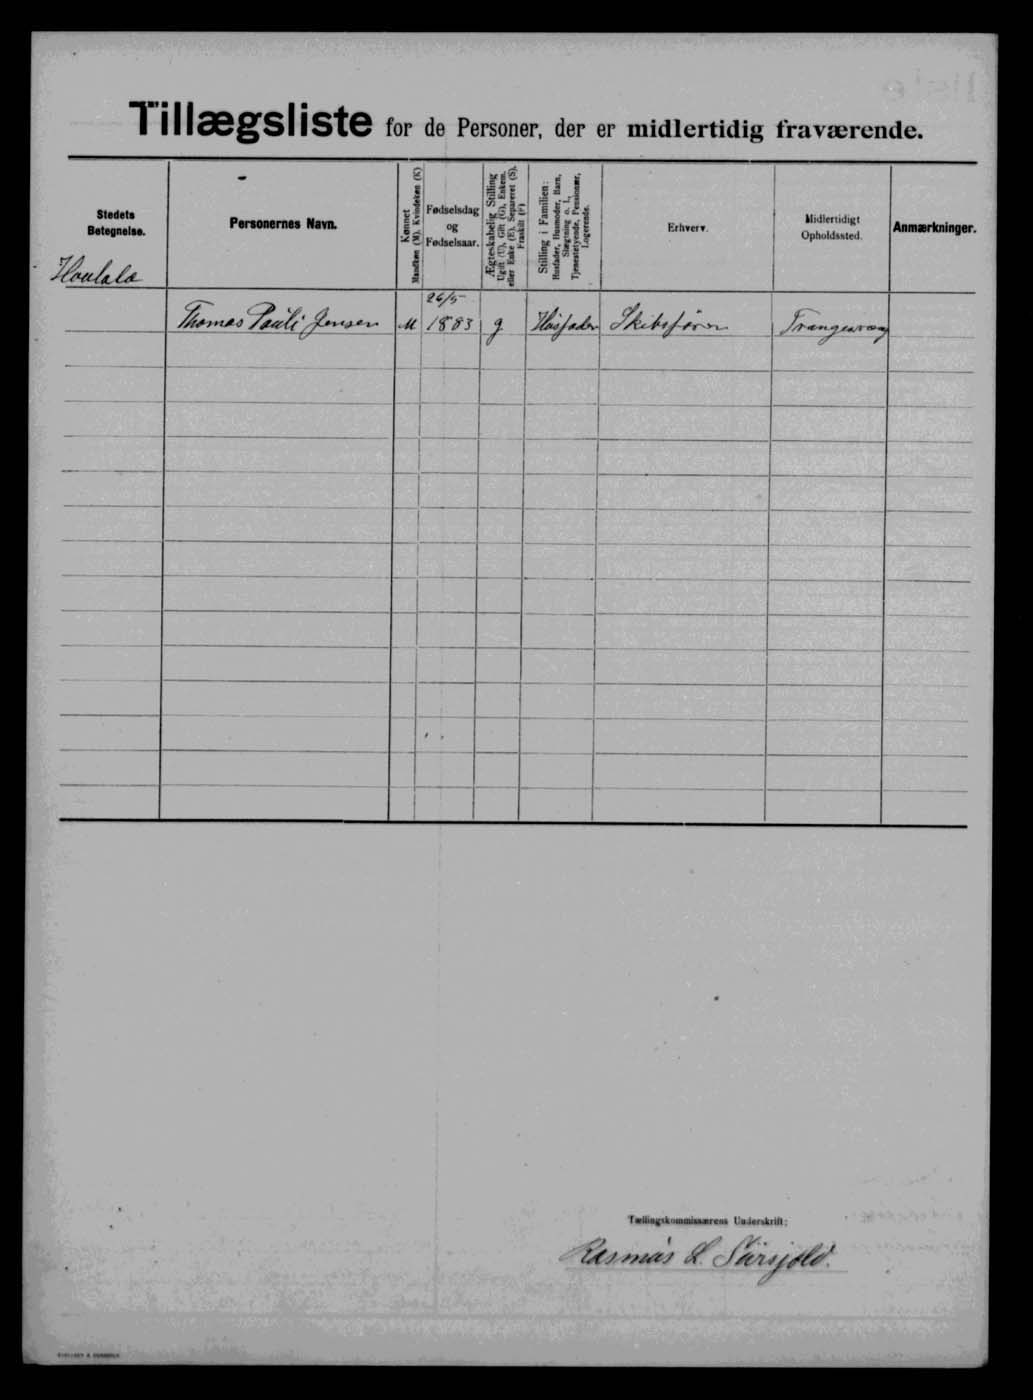 Tillægsliste for de Personer, der er midlertidig fraværende.
Stedets Betegnelse.
Personernes Navn.
Kønnet
Mandkøn (M). Kvindekøn (K)
Fødselsdag
og
Fødselsaar.
Ægteskabelig Stilling
Ugift (U), Gift (G), Enkem.
eller Enke (E), Separeret (S),
Fraskilt (F)
Stilling i Familien:
Husfader, Husmoder, Barn,
Slægtning o. l.,
Tjenestetyende, Pensionær,
Logerende.
Erhverv.
Midlertidigt
Opholdssted.
Anmærkninger.
26/5
Thomas Pauli Jensen M 1883 g Husfader Skibsfører
Tællingskommissærens Underskrift:
Rasmus L.